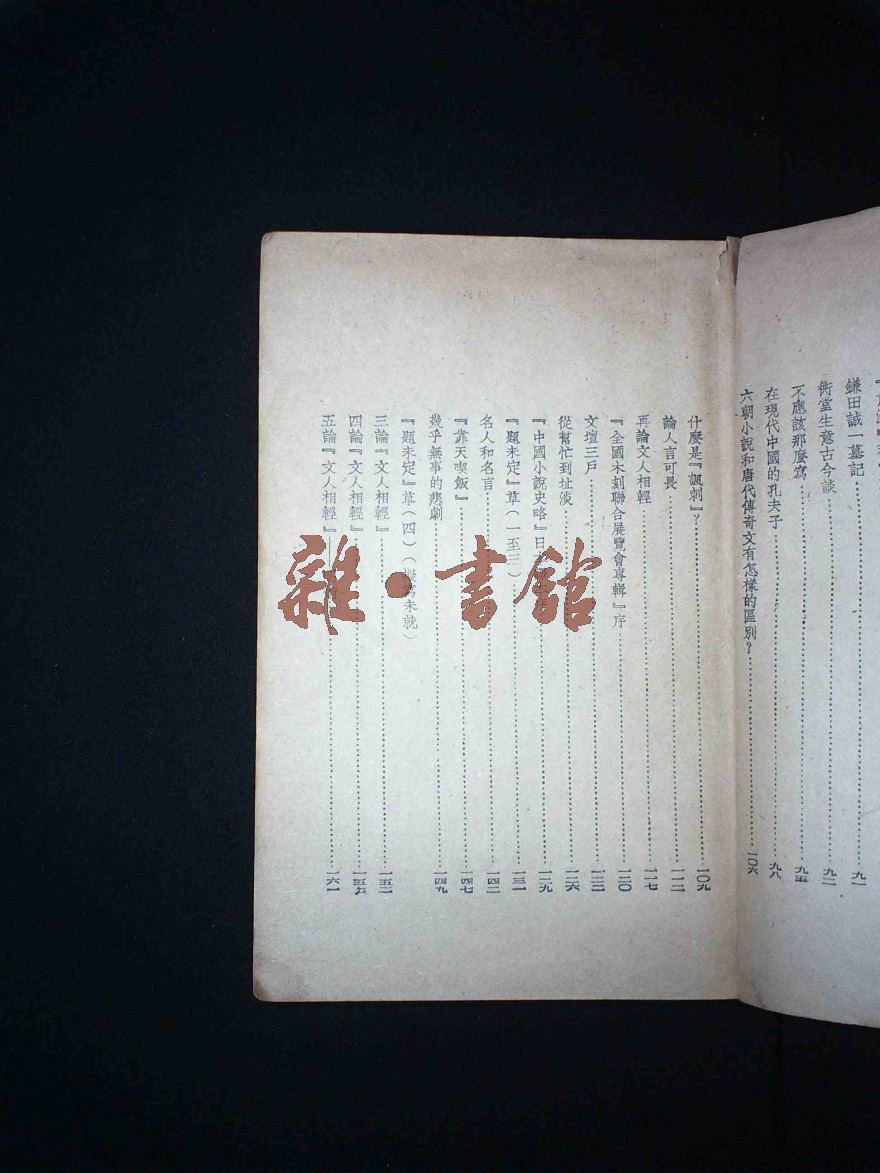 鎌田誠一墓記……九一
衖堂生意古今談……九二
不應該那麼寫……九五
在現代中國的孔夫子……九八
六朝小說和唐代傳奇文有怎樣的區別？……一〇六
什麼是『諷刺』？……一〇九
論人言可畏……一一二
再論文人相輕……一一七
『全國木刻聯合展覽會專輯』序……一二〇
文壇三戶……一二二
從幫忙到扯淡……一二六
『中國小說史略』日……一二九
『題未定』草（一至三）……一三一
名人和名言……一四二
『靠天喫飯』……一四七
幾乎無事的悲劇……一四九
『題未定』草（四）（擬寫未就）
三論『文人相輕』……一五二
四論『文人相輕』……一五六
五論『文人相輕』……一六一
雜·書館